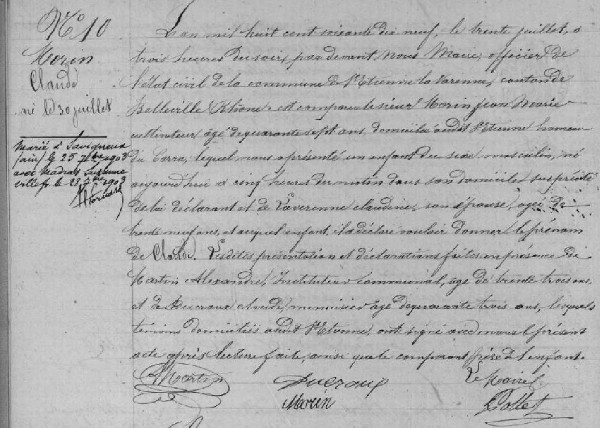 N° 10
Morin
Claude
né le 30 juillet
Marié à Savigneux
(Ain) le 23 7bre 1903
avec
L'an mil huit cent soixante dix neuf, le trente juillet, à
trois heures du soir, par devant, Nous Maire, officier de
l'état civil de la commune de St Etienne la Varenne, canton de
Belleville Rhône est comparu le sieur Morin jean Marie
cultivateur âgé de quarante sept ans, domicilié audit St Etienne hameau
du Perra, lequel nous a présenté un enfant du sexe masculin, né
aujourd'hui à cinq heures du matin dans son domicile susprécité
de lui déclarant et de Laverenne claudine, son épouse, âgée de
trente neuf ans, et auquel enfant il a déclaré vouloir donner le prénom
de Claude. Les dites présentation et déclarations faites en présence de
Martin Alexandre, Instituteur communal, âgé de trente trois ans,
et de Ducroux claude, menuisier âgé de quarante trois ans, lesquels
témoins domiciliés audit St Etienne, ont signé avec nous le présent
acte après lecture faite, ainsi que le comparant père de l'enfant.
Martin Ducroux Le Maire
Morin Pollet